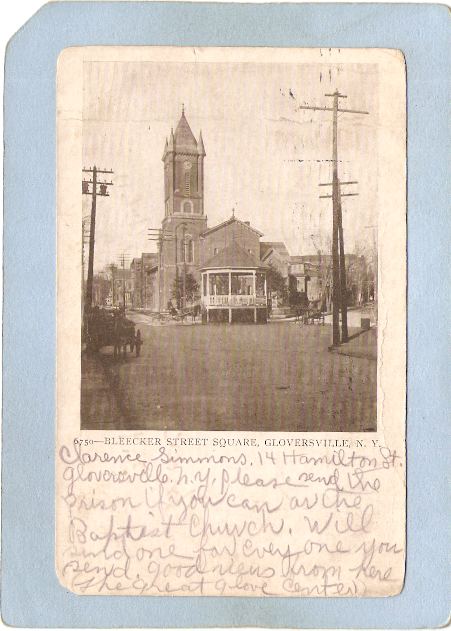 6750—BLEECKER STREET SQUARE, GLOVERSVILLE, N. Y.
Clarence Simmons. 14 Hamilton St.
Gloversville. N.Y. please send the
prison if you can or the
Baptist Church. Will
send one for every one you
send. good views from here
(The Great Glove Center)